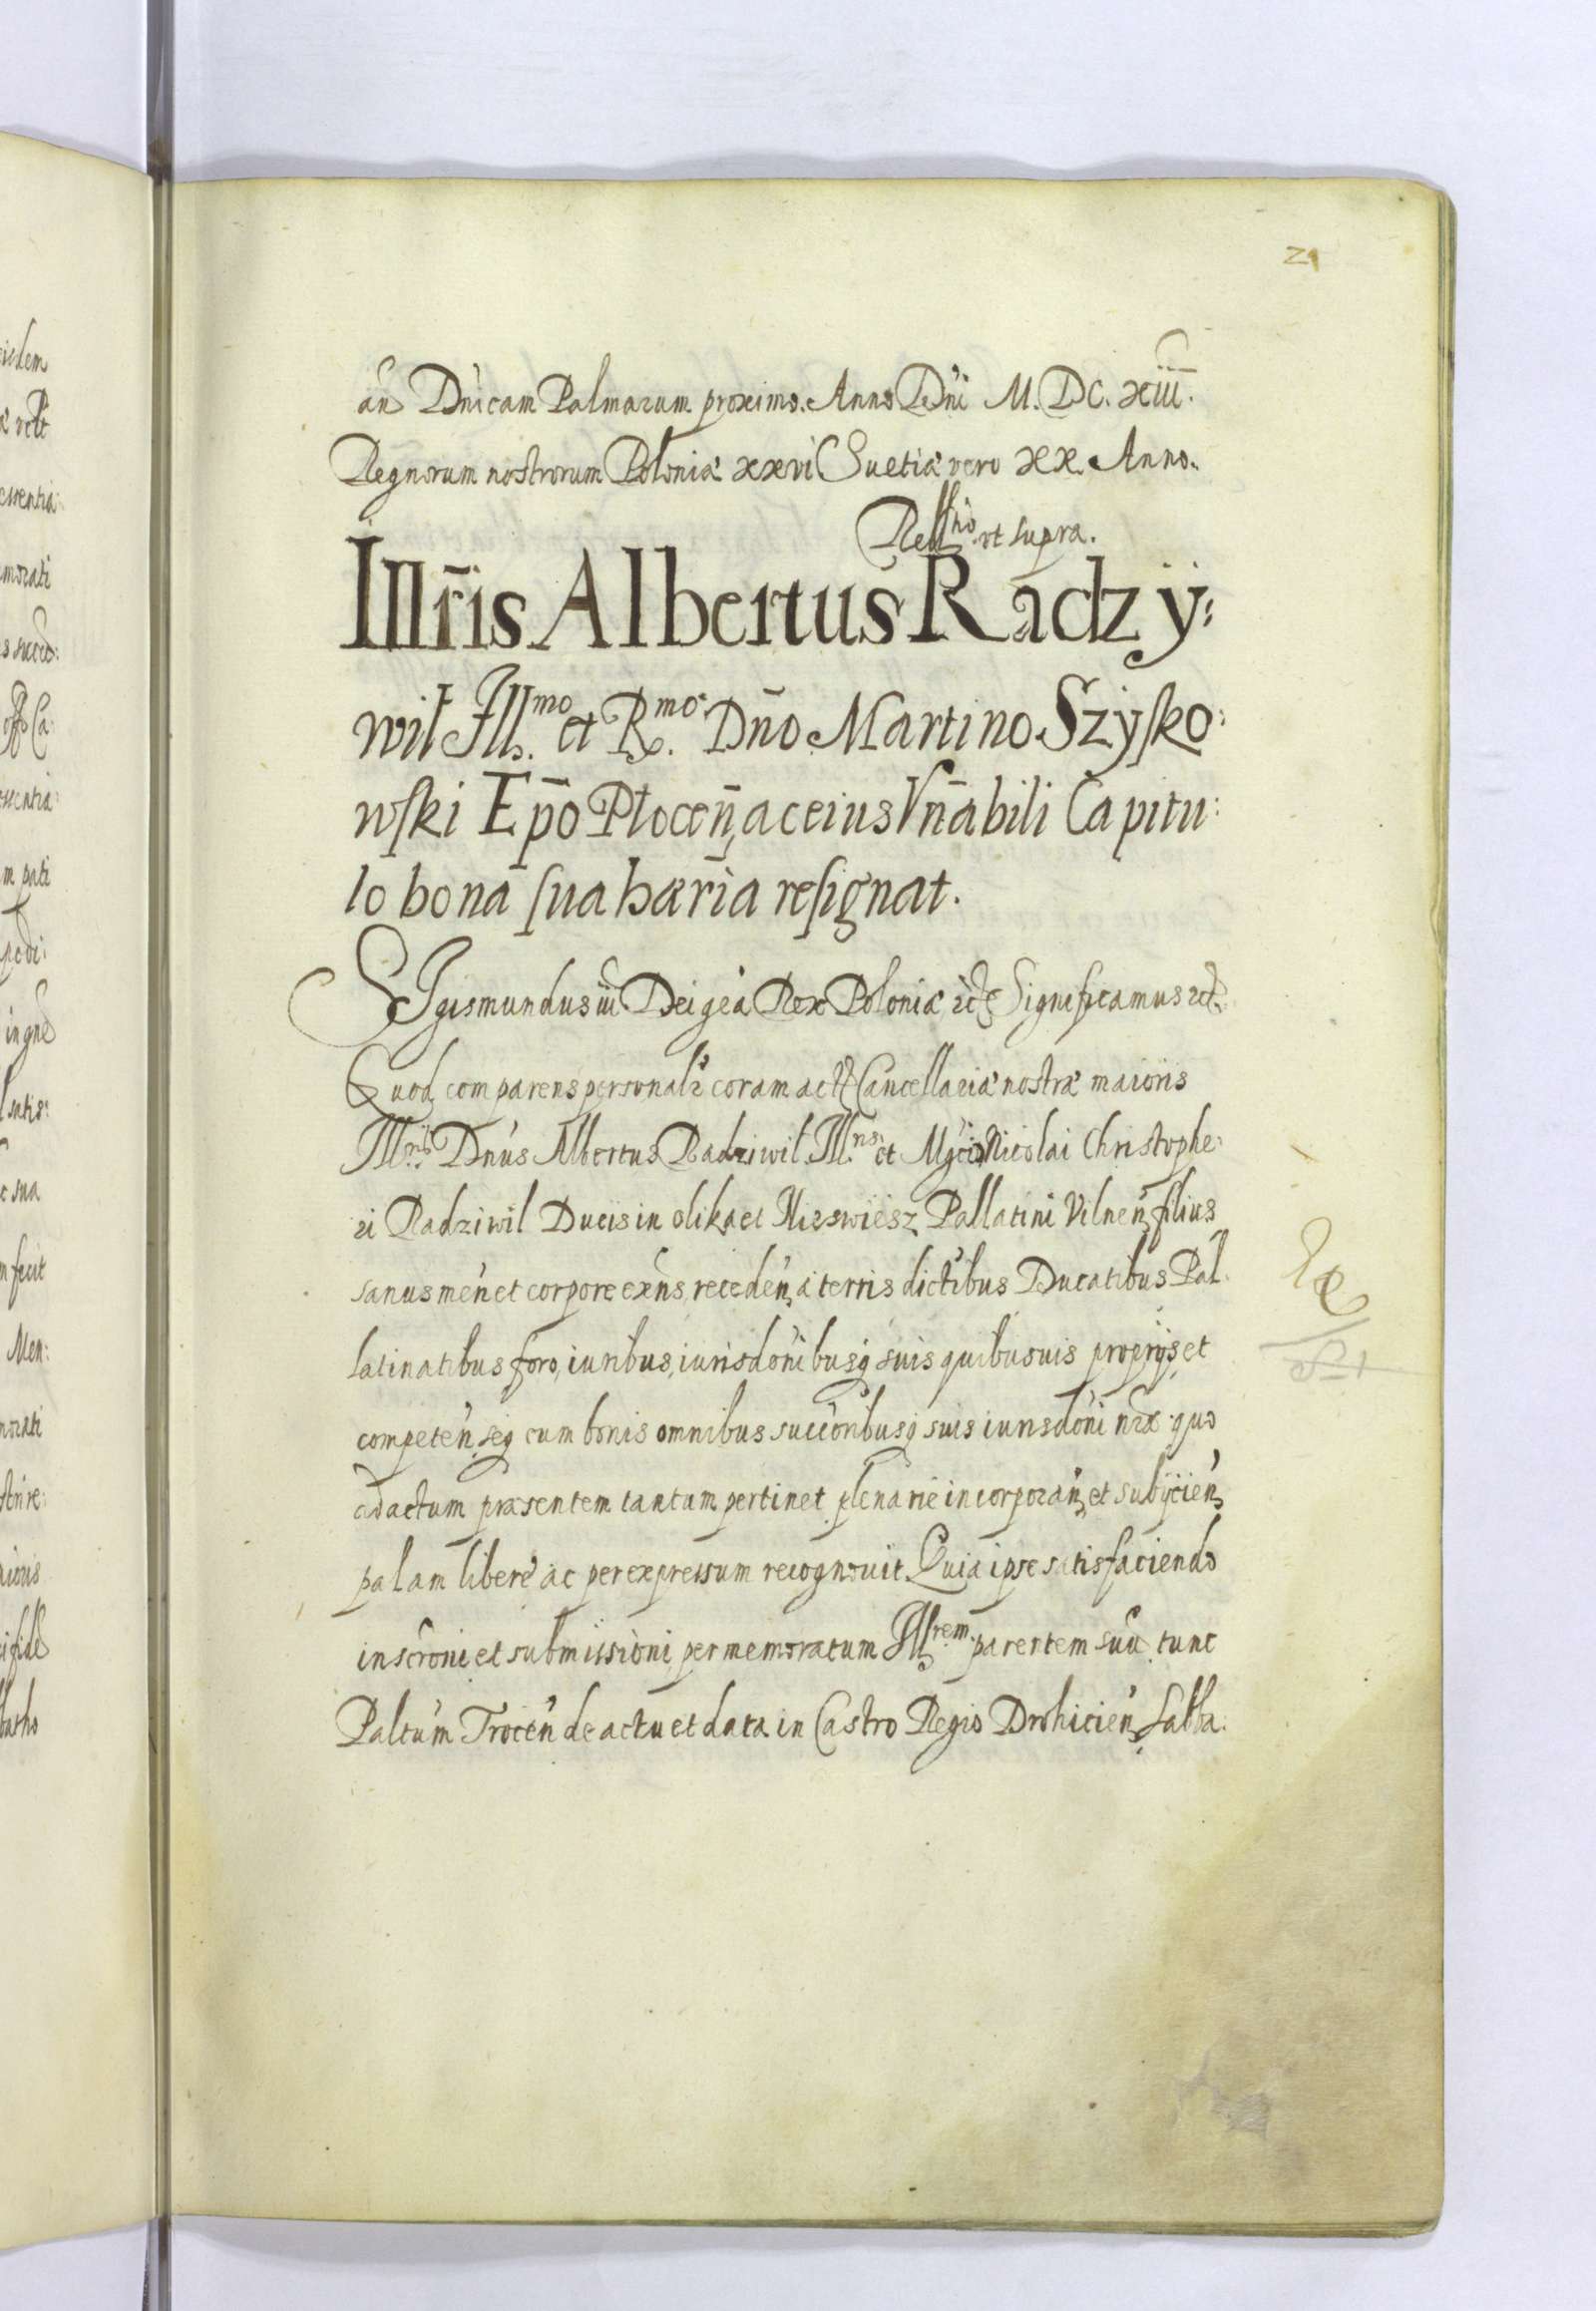 21
an Dnicam Palmarum proximo. Anno Dni M. DC. xiii.
Regnorum nostrorum Poloniæ xxvi Suetiæ vero xx Anno.
ut supra.
Illr̃is Albertus Radzÿ:
wił Ill.mo et R.mo Dño Martino Szÿsko:
wski Ep̃o Płoceñ, ac eius Vñabili Capitu:
lo bona sua hær̃ia resignat.
Sigismundus iii Dei gr̃a Rex Poloniæ etc Significamus etc.
Quod comparens personalr coram act Cancellariæ nostræ maioris
Ill.ris Dnus Albertus Radziwil Ill.ris et Mgci Nicolai Christophe:
ri Radziwil Ducis in olika et Nieswiesz Pallatini Vilnen, filius
sanus men et corpore exns, receden, a terris dictibus Ducatibus Pal:
latinatibus foro, iuribus, iurisdonibusq suis quibusuis proprijs et
competen, seq cum bonis omnibus succoribusq suis iurisdoni nræ quo
ad actum præsentem tantum pertinet plenarie incorporan, et subijcien,
palam libere ac per expressum recognouit Quia ipse satisfaciendo
inscroni et submissioni per memoratum Ill.rem parentem suu tunc
Paltum Trocen de actu et data in Castro Regio Drohicien, Sabba: